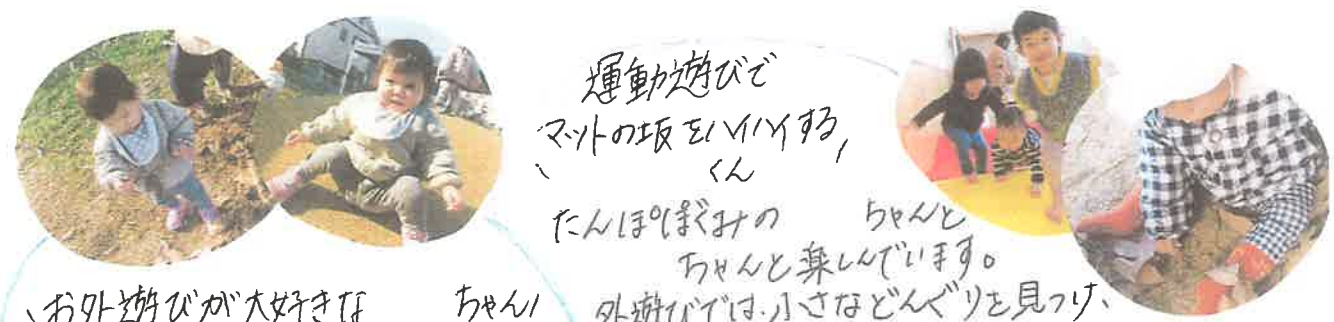 運動遊びで
マットの坂をハイハイする、
くん
たんぽぽぐみの　ちゃんと
ちゃんと楽しんでいます。
外遊びでは、小さなどんぐりを見つけ、
お外遊びが大好きな　ちゃん！